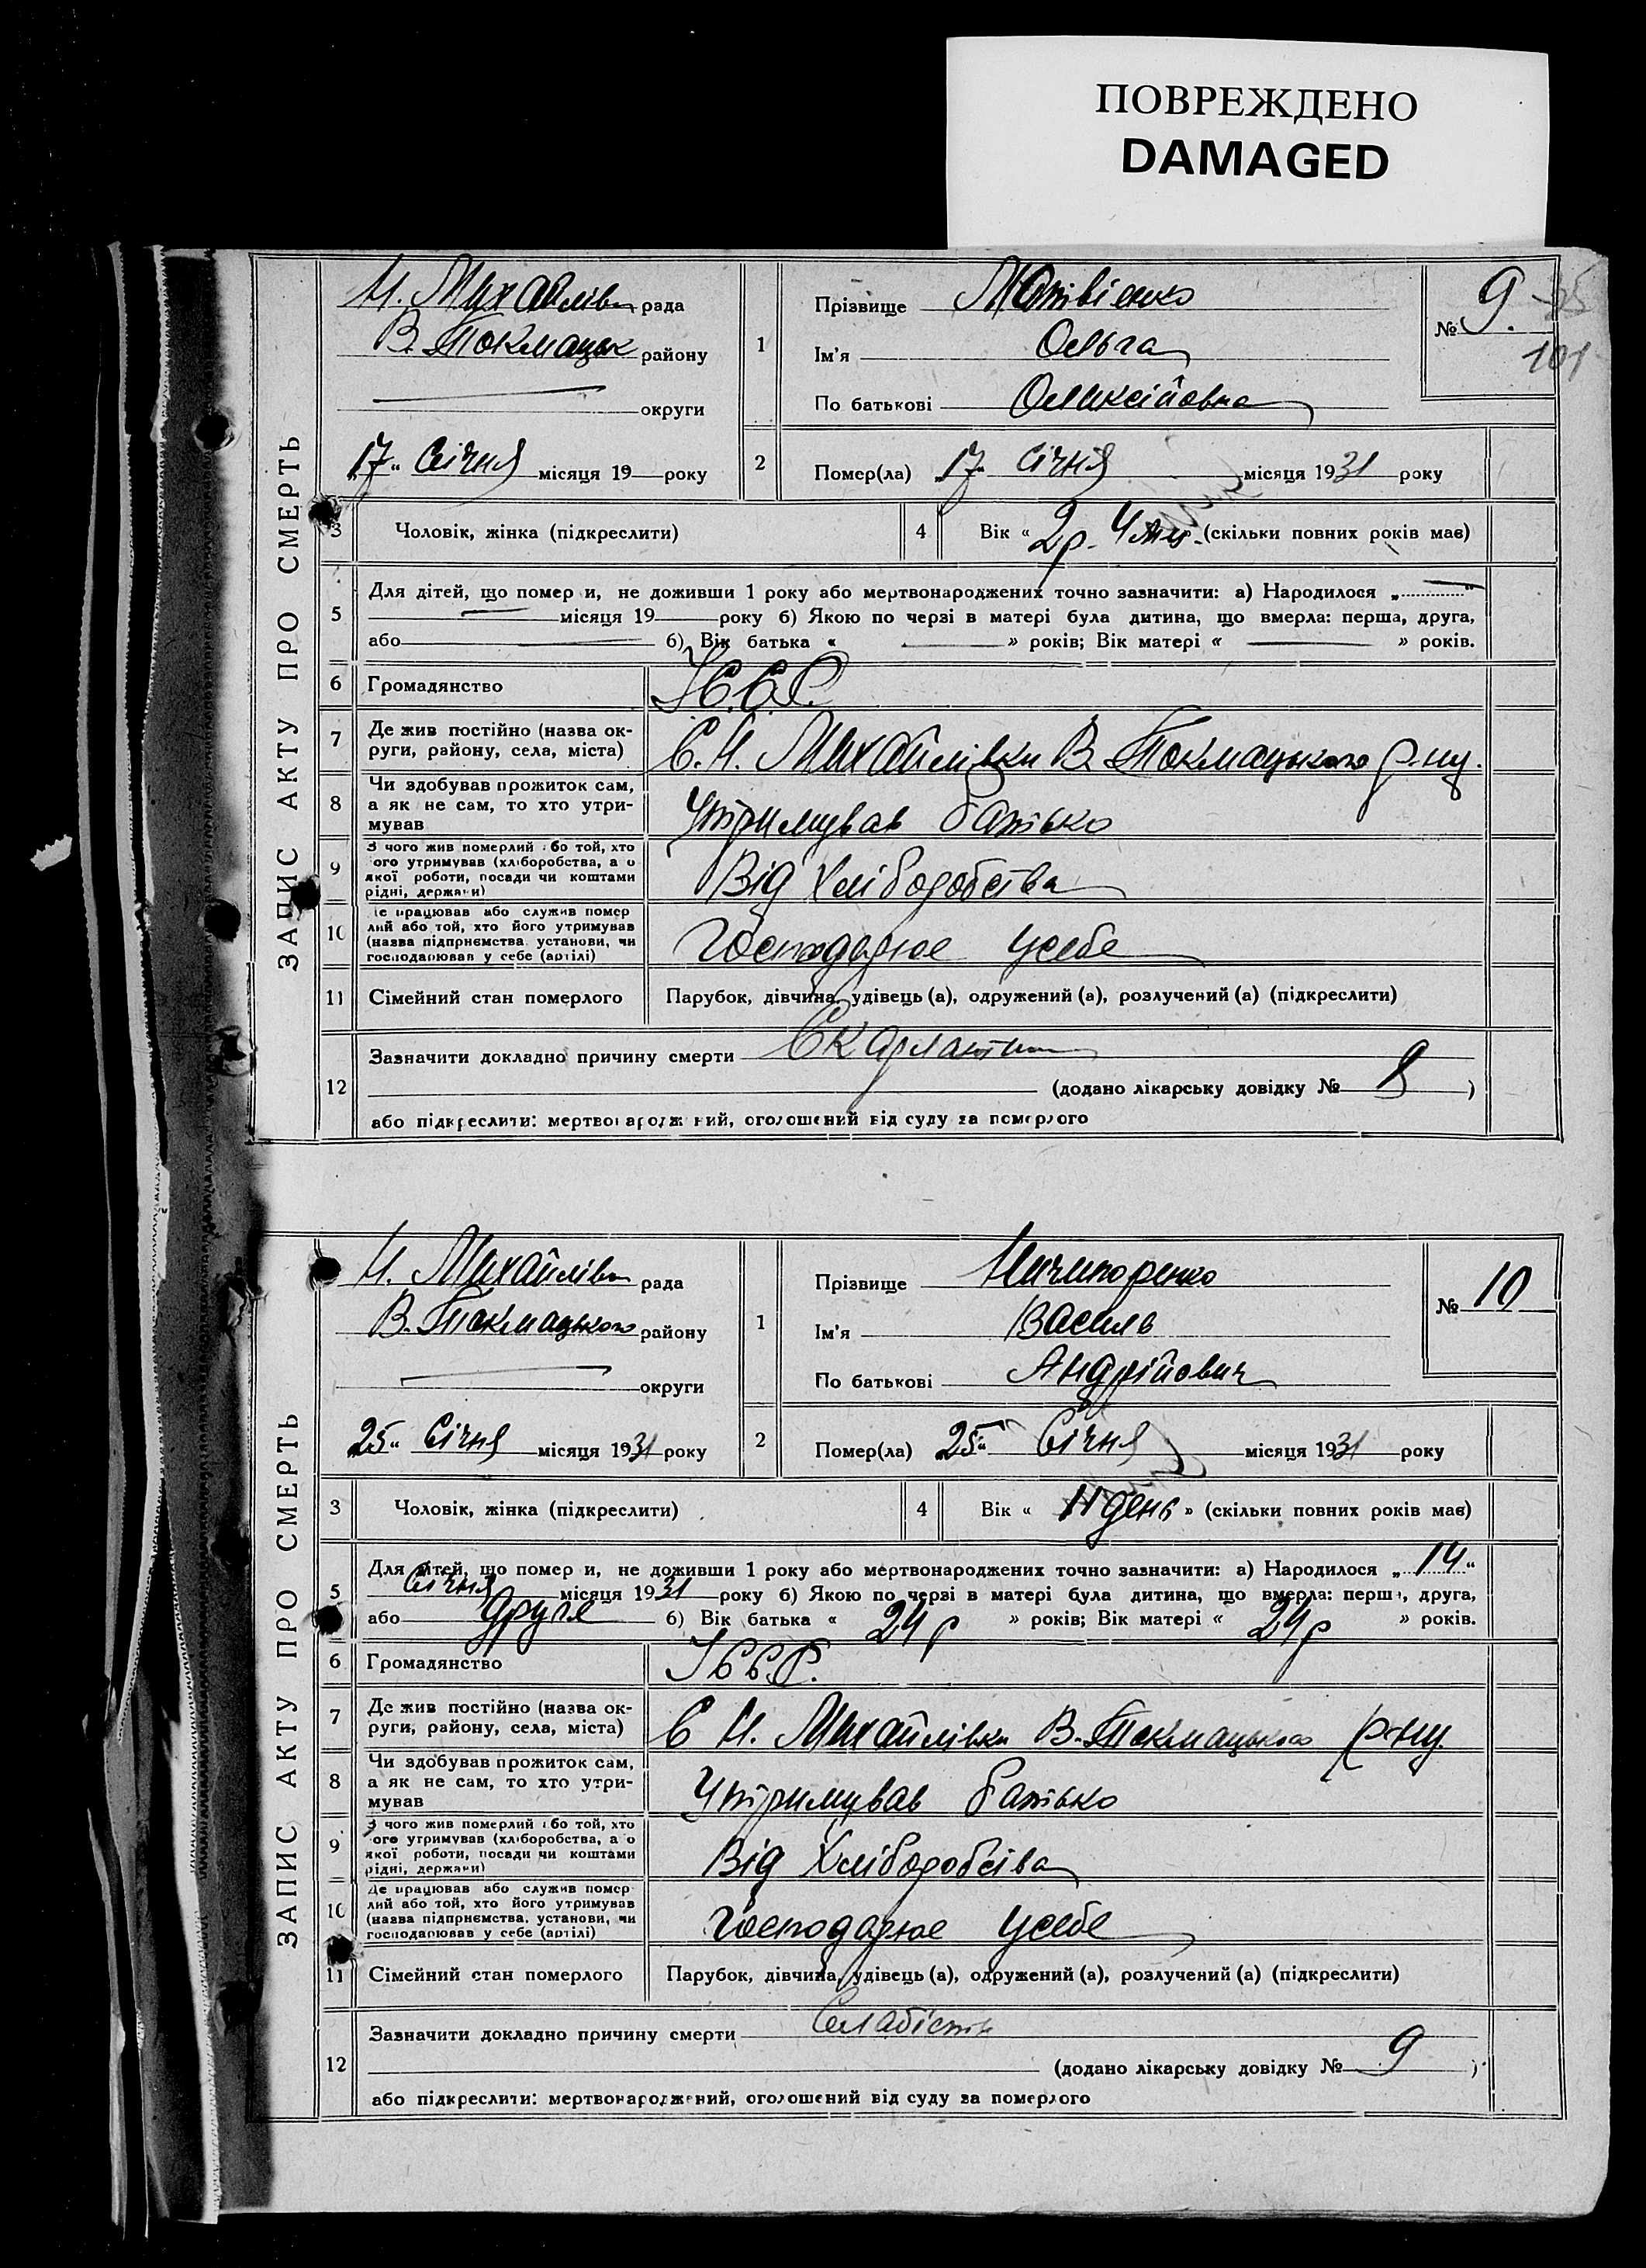 ПОВРЕЖДЕНО
DAMAGED
ЗАПИС АКТУ ПРО СМЕРТЬ
Н. Михайлівк рада
В. Токмацьк району
округи
17 Січня місяця 19 року
1
Прізвище Матвієнко
Ім'я Ольга
По батькові Оликсіївна
№ 9.
101
2
Помер(ла) 17 Січня місяця 1931 року
3 Чоловік, жінка (підкреслити)
4 Вік « 2 р. 4 міс. (скільки повних років має)
5
Для дітей, що помер и, не доживши 1 року або мертвонароджених точно зазначити: а) Народилося „ “
місяця 19 року б) Якою по черзі в матері була дитина, що вмерла: перша, друга,
або б) Вік батька « » років; Вік матері « » років.
6 Громадянство У.С.С.Р.
7 Де жив постійно (назва ок-
руги, району, села, міста)
С. Н. Михайлівки В. Токмацького р-ну.
8 Чи здобував прожиток сам,
а як не сам, то хто утри-
мував
Утримував батько
9 З чого жив померлий або той, хто
ого утримував (хліборобства, а о
якої роботи, посади чи коштами
рідні, держави)
Від Хліборобства
10 е працював або служив помер
лий або той, хто його утримував
(назва підприємства, установи, чи
господарював у себе (артілі)
Господарює усебе
11 Сімейний стан померлого Парубок, дівчина, удівець (а), одружений (а), розлучений (а) (підкреслити)
12
Зазначити докладно причину смерти Скарлатина
(додано лікарську довідку № 8 )
або підкреслити: мертвонароджений, оголошений від суду за померлого
ЗАПИС АКТУ ПРО СМЕРТЬ
Н. Михайлівк рада
В. Токмацького району
округи
25 Січня місяця 1931 року
1
Прізвище Ничипоренко
Ім'я Василь
По батькові Андрійович
№ 10
2
Помер(ла) 25 Січня місяця 1931 року
3 Чоловік, жінка (підкреслити)
4 Вік « 11 день » (скільки повних років має)
5
Для дітей, що помер и, не доживши 1 року або мертвонароджених точно зазначити: а) Народилося „ 14 “
Січня місяця 1931 року б) Якою по черзі в матері була дитина, що вмерла: перша, друга,
або друга б) Вік батька « 24 р » років; Вік матері « 24 р » років.
6 Громадянство У.С.С.Р.
7 Де жив постійно (назва ок-
руги, району, села, міста)
С Н. Михайлівки В. Токмацького р-ну.
8 Чи здобував прожиток сам,
а як не сам, то хто утри-
мував
Утримував батько
9 З чого жив померлий або той, хто
ого утримував (хліборобства, а о
якої роботи, посади чи коштами
рідні, держави)
Від Хліборобства
10 Де працював або служив помер
лий або той, хто його утримував
(назва підприємства, установи, чи
господарював у себе (артілі)
Господарює усебе
11 Сімейний стан померлого Парубок, дівчина, удівець (а), одружений (а), розлучений (а) (підкреслити)
12
Зазначити докладно причину смерти Слабість
(додано лікарську довідку № 9 )
або підкреслити: мертвонароджений, оголошений від суду за померлого